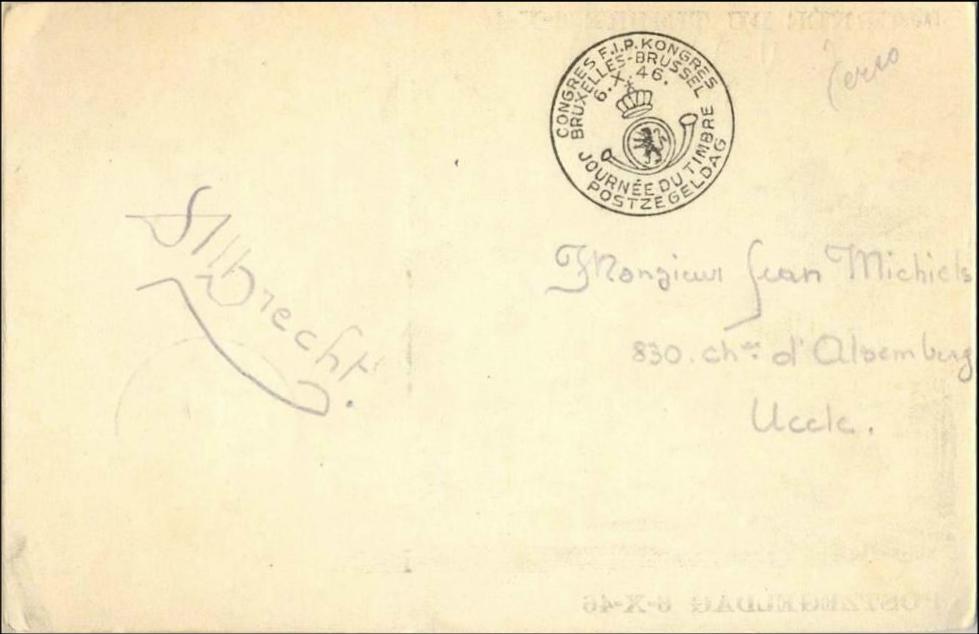 CONGRÈS F.I.P. KONGRES
BRUXELLES-BRUSSEL
6.X.46.
JOURNÉE DU TIMBRE
POSTZEGELDAG
Albrecht.
Monsieur Jean Michiels
830. chée d'Alsemberg
Uccle.
POSTZEGELDAG 6-X-46